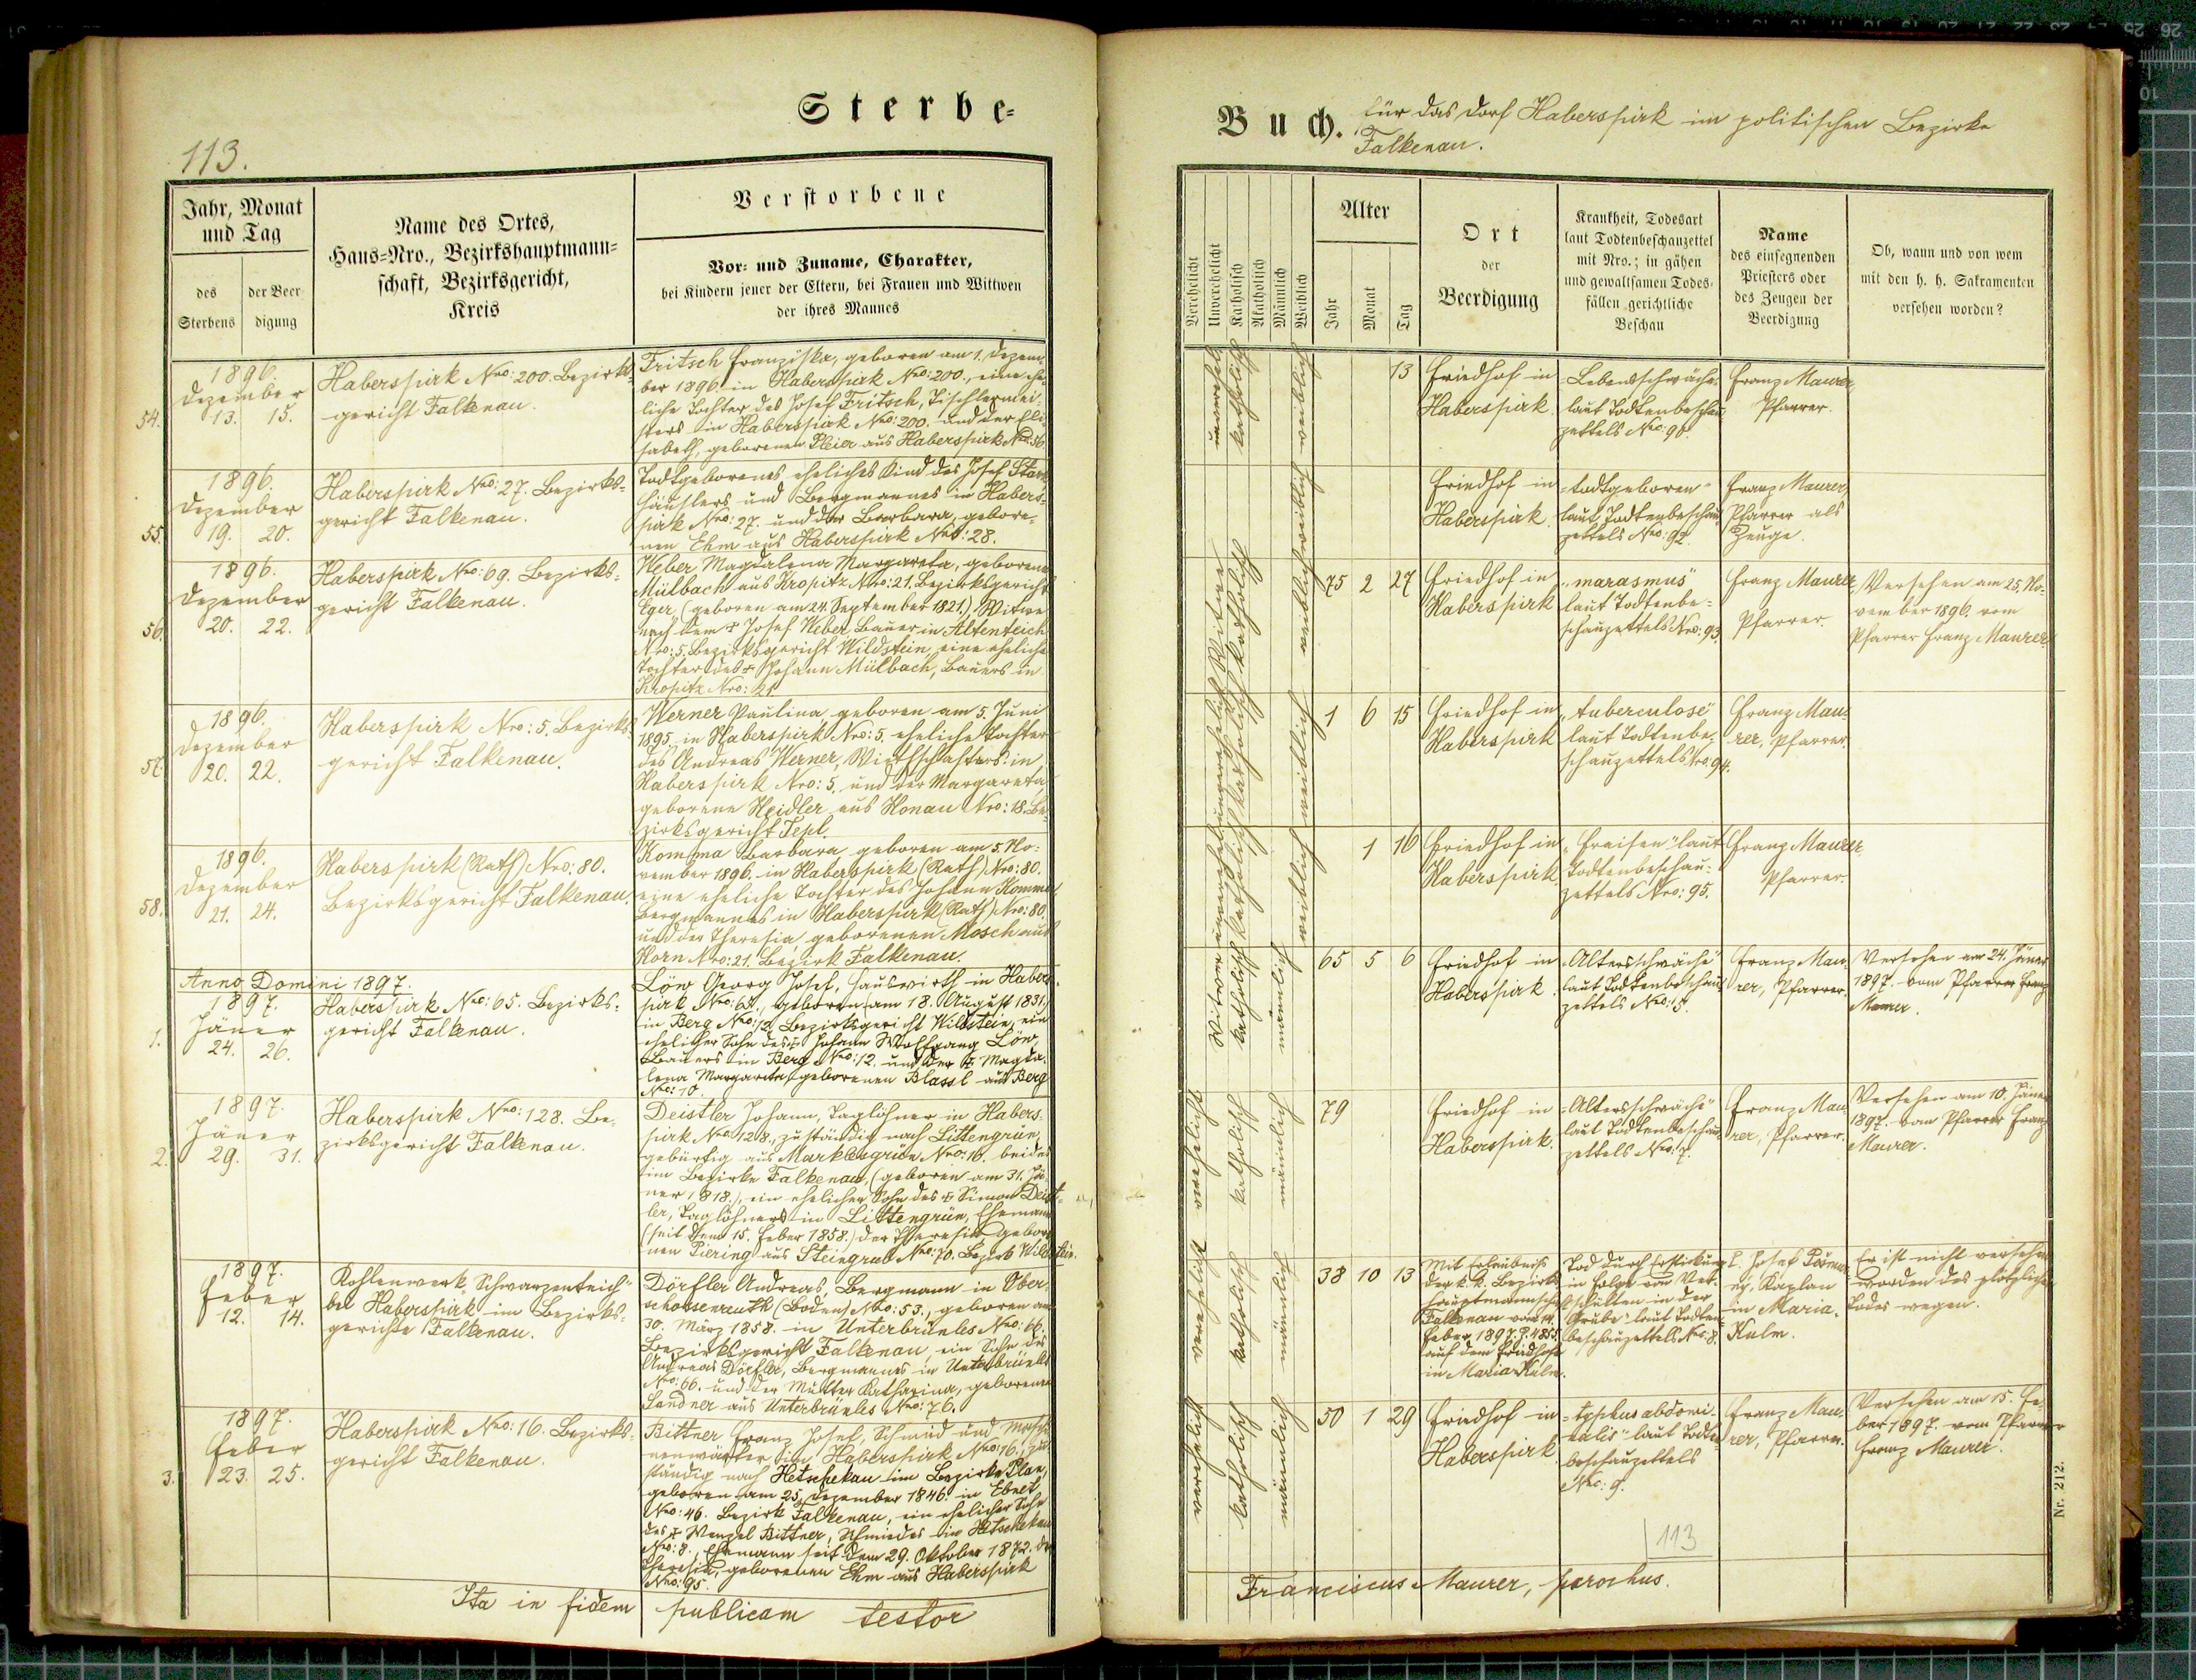 Sterbe-
113.
Jahr, Monat
und Tag
des
Sterbens
der Beer
digung
Name des Ortes,
Haus-Nro., Bezirkshauptmann-
schaft, Bezirksgericht,
Kreis
Verstorbene
Vor- und Zuname, Charakter,
bei Kindern jener der Eltern, bei Frauen und Wittwen
der ihres Mannes
54.
1896.
Dezember
13. 15.
Haberspirk Nro: 200. Bezirks-
gericht Falkenau.
Fritsch Franziska, geboren am 1. Dezem-
ber 1896. in Haberspirk Nro: 200., eine ehe-
liche Tochter des Josef Fritsch, Tischlermei-
sters in Haberspirk Nro: 200. und der Eli-
sabeth, geborenen Pleier aus Haberspirk Nro: 56
55.
1896.
Dezember
19. 20.
Haberspirk Nro: 27. Bezirks-
gericht Falkenau.
Todtgeborenes eheliches Kind des Josef Stark
Häuslers und Bergmannes in Habers-
pirk Nro: 27. und der Barbara, gebore-
nen Ehm aus Haberspirk Nro: 28.
56.
1896.
Dezember
20. 22.
Haberspirk Nro: 69. Bezirks-
gericht Falkenau.
Weber Magdalena Margareta, geborene
Mülbach aus Kropitz Nro: 21. Bezirksgericht
Eger, (geboren am 24. September 1821.) Witwe
nach dem + Josef Weber Bauer in Altenteich
Nro: 5. Bezirksgericht Wildstein, eine eheliche
Tochter des + Johann Mülbach, Bauers in
Kropitz Nro: 21.
57.
1896.
Dezember
20. 22.
Haberspirk Nro: 5. Bezirks-
gericht Falkenau.
Werner Paulina geboren am 5. Juni
1895. in Haberspirk Nro: 5. eheliche Tochter
des Andreas Werner, Wirthschafters in
Haberspirk Nro: 5. und der Margareta
geborene Heidler aus Honau Nro: 18. Be-
zirksgericht Tepl.
58.
1896.
Dezember
21. 24.
Haberspirk (Rath) Nro: 80.
Bezirksgericht Falkenau.
Komma Barbara geboren am 5. No-
vember 1896. in Haberspirk (Rath) Nro: 80.
eine eheliche Tochter des Johann Komma
Bergmannes in Haberspirk (Rath) Nro: 80.
und der Theresia, geborenen Mosch aus
Horn Nro: 21. Bezirk Falkenau.
Anno Domini 1897.
1.
1897.
Jäner
24. 26.
Haberspirk Nro: 65. Bezirks-
gericht Falkenau.
Löw Georg Josef, Hauswirth in Habers-
pirk Nro: 65., geboren am 18. August 1831.
in Berg Nro: 12. Bezirksgericht Wildstein, ein
ehelicher Sohn des + Johann Wolfgang Löw,
Bauers in Berg Nro: 12. und der + Magda-
lena Margareta, geborenen Blassl aus Berg
Nro: 10.
2.
1897.
Jäner
29. 31.
Haberspirk Nro: 128. Be-
zirksgericht Falkenau.
Deistler Johann, Taglöhner in Habers-
pirk Nro: 128., zuständig nach Littengrün,
gebürtig aus Marklesgrün Nro: 16. beides
im Bezirke Falkenau, (geboren am 31. Jä-
ner 1818.), ein ehelicher Sohn des + Simon Deist-
ler, Taglöhners in Littengrün, Ehemann
(seit dem 15. Feber 1858.) der Theresia gebore-
nen Piering aus Steingrub Nro: 70. Bezirk Wildstein.
1897.
Feber
12. 14.
Kohlenwerk „Schwarzenteich“
bei Haberspirk im Bezirks-
gerichte Falkenau.
Dörfler Andreas, Bergmann in Ober-
schossenreuth (Boden) Nro: 53., geboren am
30. März 1858. in Unterbrünles Nro: 66.
Bezirksgericht Falkenau, ein Sohn des
Andreas Dörfler, Bergmannes in Unterbrünles
Nro: 66. und der Mutter Katharina, geborenen
Sandner aus Unterbrünles Nro: 76.
3.
1897.
Feber
23. 25.
Haberspirk Nro: 16. Bezirks-
gericht Falkenau.
Bittner Franz Josef, Schmied und Maschi-
nenwärter in Haberspirk Nro: 16., zu-
ständig nach Hetschekau im Bezirke Plan,
geboren am 25. Dezember 1846. in Ebnet
Nro: 46. Bezirk Falkenau, ein ehelicher Sohn
des + Wenzel Bittner, Schmiedes in Hetschekau
Nro: 8., Ehemann seit dem 29. Oktober 1872. der
Theresia, geborenen Ehm aus Haberspirk
Nro: 95.
Ita in fidem publicam testor
Buch. für das Dorf Haberspirk im politischen Bezirke
Falkenau.
Verehelicht
Unverehelicht
Katholisch
Akatholisch
Männlich
Weiblich
Alter
Jahr
Monat
Tag
Ort
der
Beerdigung
Krankheit, Todesart
laut Todtenbeschauzettel
mit Nro.; in gähen
und gewaltsamen Todes-
fällen gerichtliche
Beschau
Name
des einsegnenden
Priesters oder
des Zeugen der
Beerdigung
Ob, wann und von wem
mit den h. h. Sakramenten
versehen worden?
katholisch weiblich
13
Friedhof in
Haberspirk.
„Lebensschwäche“
laut Todtenbeschau-
zettels Nro: 90.
Franz Maurer,
Pfarrer.
weiblich
Friedhof in
Haberspirk.
„todtgeboren“
laut Todtenbeschau-
zettels Nro: 92.
Franz Maurer,
Pfarrer als
Zeuge.
Witwe katholisch weiblich
75 2 27
Friedhof in
Haberspirk
„marasmus“
laut Todtenbe-
schauzettels Nro: 93.
Franz Maurer,
Pfarrer.
Versehen am 25. No-
vember 1896. vom
Pfarrer Franz Maurer.
unverehelicht katholisch weiblich
1 6 15
Friedhof in
Haberspirk
„tuberculose“
laut Todtenbe-
schauzettels Nro: 94.
Franz Mau-
rer, Pfarrer.
unverehelicht katholisch weiblich
1 16
Friedhof in
Haberspirk
„Fraisen“ laut
Todtenbeschau-
zettels Nro: 95.
Franz Maurer
Pfarrer.
Witwer katholisch männlich
65 5 6
Friedhof in
Haberspirk.
„Altersschwäche“
laut Todtenbeschau-
zettels Nro: 5.
Franz Mau-
rer, Pfarrer.
Versehen am 24. Jäner
1897. vom Pfarrer Franz
Maurer.
verehelicht katholisch männlich
79
Friedhof in
Haberspirk.
„Altersschwäche“
laut Todtenbeschau-
zettels Nro: 7.
Franz Mau-
rer, Pfarrer.
Versehen am 10. Jäner
1897. vom Pfarrer Franz
Maurer.
verehelicht katholisch männlich
38 10 13
Mit Erlaubniß
der k. k. Bezirks-
hauptmannschaft
Falkenau vom 14.
Feber 1897. Z. 4855.
auf dem Friedhofe
in Maria Kulm.
Tod durch Erstickung
in Folge von Ver-
schütten in der
Grube“ laut Todten-
beschauzettels Nro: 8.
Kaplan
in Maria-
Kulm.
Er ist nicht versehen
worden des plötzlichen
Todes wegen.
verehelicht katholisch männlich
50 1 29
Friedhof in
Haberspirk.
„typhus abdomi-
nalis“ laut Todten-
beschauzettels
Nro: 9.
Franz Mau-
rer, Pfarrer.
Versehen am 15. Fe-
ber 1897. vom Pfarrer
Franz Maurer.
113
Franciscus Maurer, parochus.
Nr. 212.